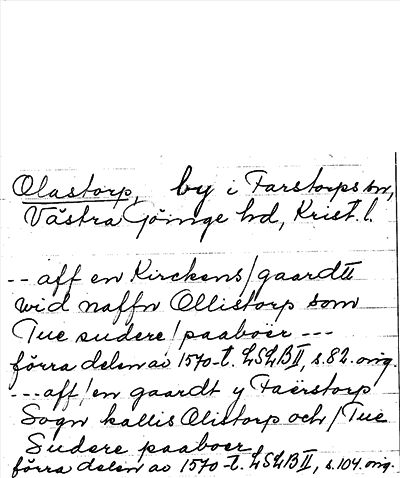 Olastorp, by i Farstorps sn,
Västra Göinge hd, Krist. l.
-- aff en Kirckens/gaardtt
wid naffn Ollistorp som
Tue sudere/paaboer ---
förra delen av 1570-t. LSLB II, s. 82. orig.
---aff/en gaardt y Faerstorp
Sogn kallis Olistorp och/Tue
Sudere paaboer
förra delen av 1570-t. LSLB II, s. 104. orig.